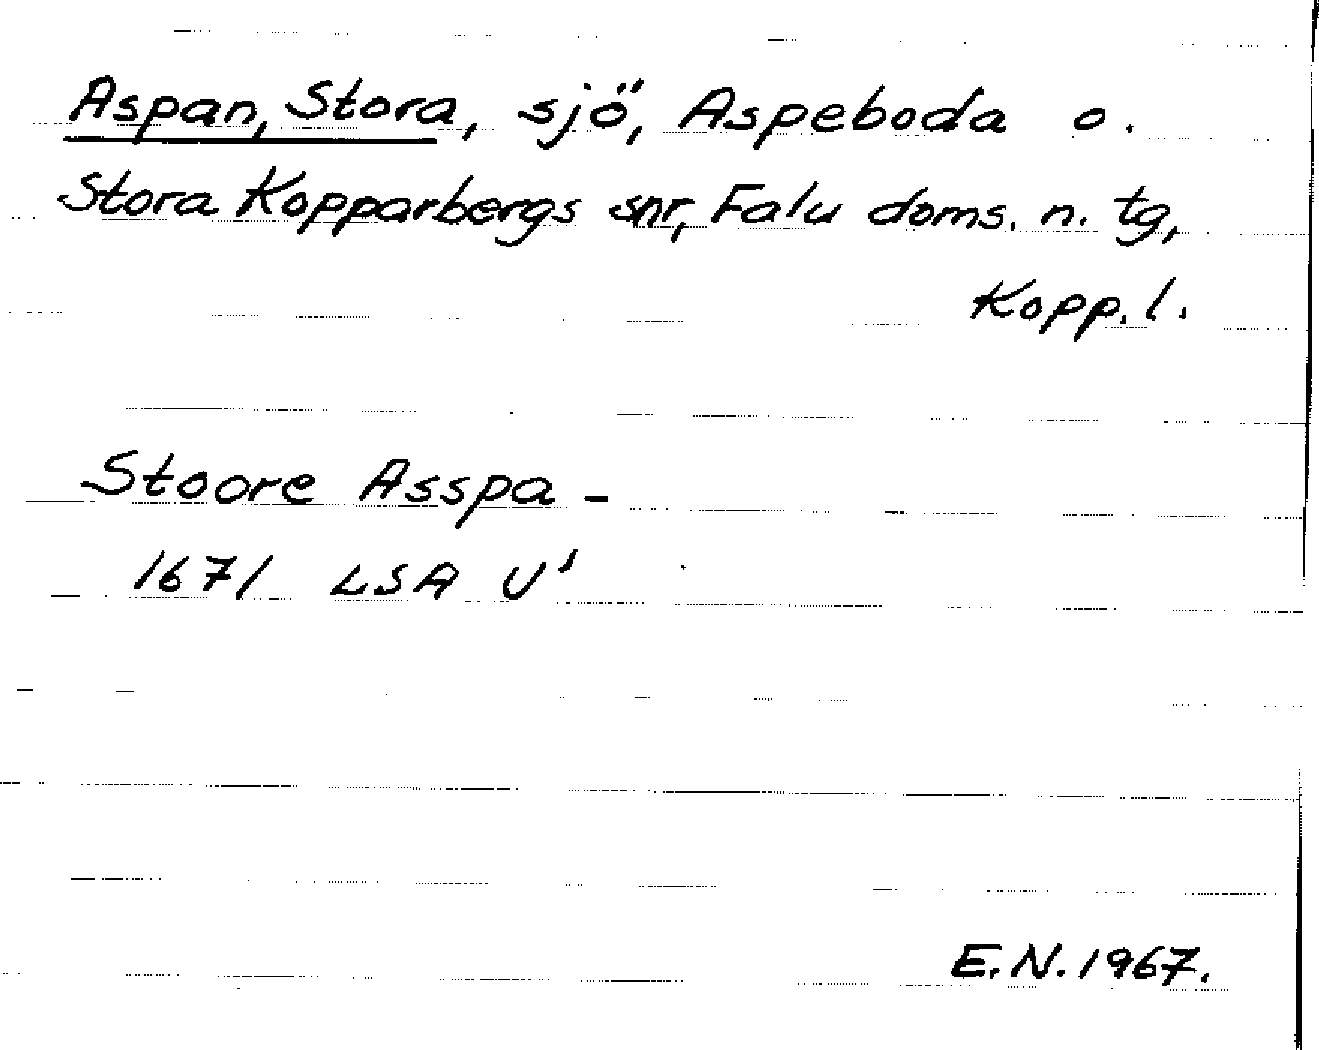 Aspan, Stora, sjö, Aspeboda o.
Stora Kopparbergs snr, Falu doms. n. tg,
Kopp. l.
Stoore Asspa -
1671 LSA U¹
E.N. 1967.